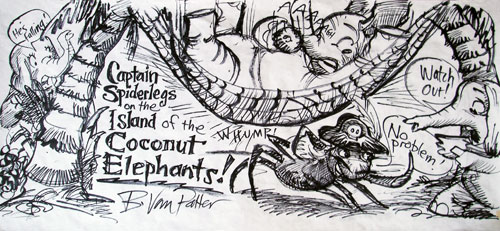 He's mine!
Captain
Spiderlegs
on the
Island of the
Coconut
Elephants!
B. Van Patter
WHUMP!
Watch
Out!
No
problem